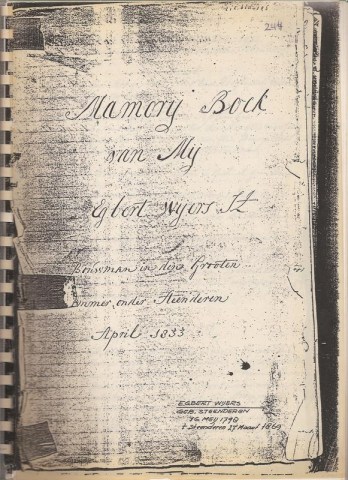 244
Mamorij Boek
van Mij
Egbert Wijers
Bouwman in den Grooten
onder Steenderen
April 1833
EGBERT WIJERS
GEB. STEENDEREN
MEIJ 1790
† Steenderen 27 Maart 1869